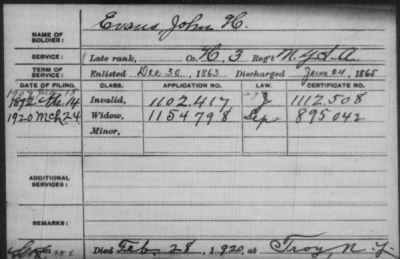 Evans, John H.
NAME OF SOLDIER:
SERVICE: Late rank, Co. H, 3 Reg't N.Y. L.A.
TERM OF SERVICE: Enlisted Dec 30, 1863 Discharged June 24, 1865
DATE OF FILING. CLASS. APPLICATION NO. LAW. CERTIFICATE NO.
1892 14 Invalid, 1102.417 1112.508
1920 Mch 24 Widow, 1154798 895042
Minor,
ADDITIONAL SERVICES:
REMARKS:
Died Feb. 28, 1920, at Troy, N.Y.